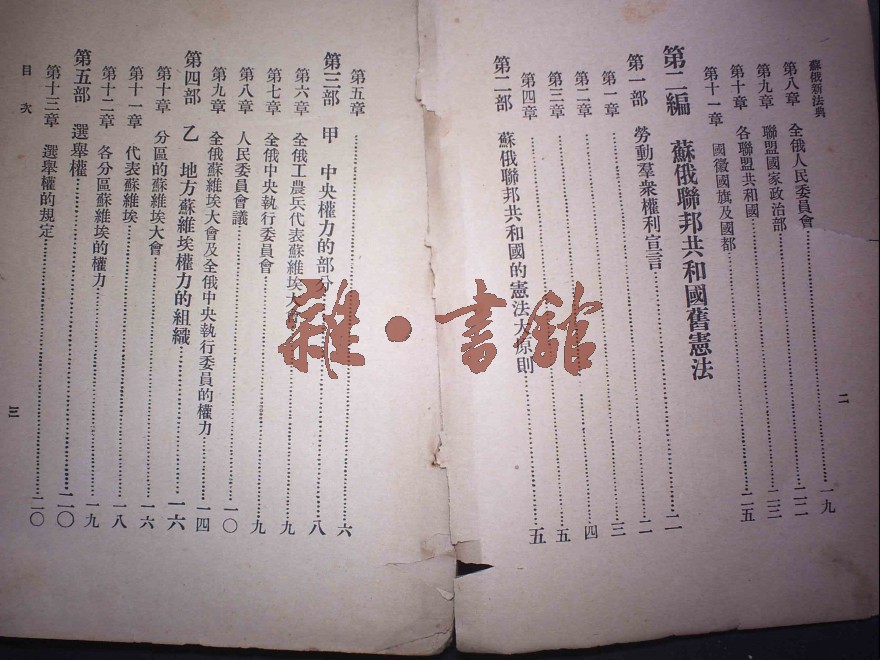 蘇俄新法典
二
第八章 全俄人民委員會……一九
第九章 聯盟國家政治部……二二
第十章 各聯盟共和國……二三
第十一章 國徽國旗及國都……二五
第二編 蘇俄聯邦共和國舊憲法
第一部 勞動羣衆權利宣言……二
第一章……二
第二章……三
第三章……四
第四章……五
第二部 蘇俄聯邦共和國的憲法大原則……五
第五章……六
第三部 甲 中央權力的部分……八
第六章 全俄工農兵代表蘇維埃大會……九
第七章 全俄中央執行委員會……九
第八章 人民委員會議……一〇
第九章 全俄蘇維埃大會及全俄中央執行委員的權力……一四
第四部 乙 地方蘇維埃權力的組織……一六
第十章 分區的蘇維埃大會……一六
第十一章 代表蘇維埃……一八
第十二章 各分區蘇維埃的權力……一九
第五部 選舉權……二〇
第十三章 選舉權的規定……二〇
目次
三
雜·書館